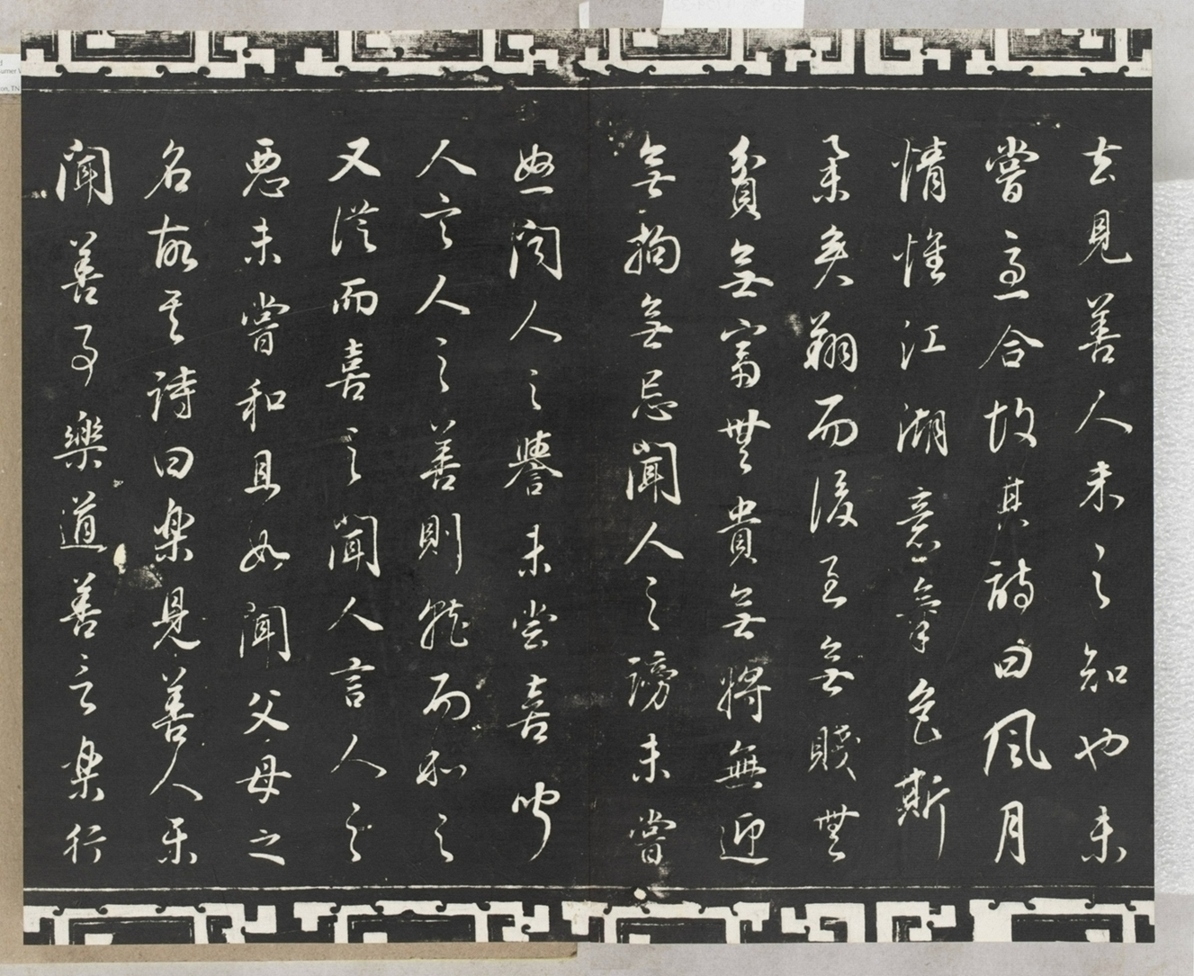 去見善人未之知也未
嘗急合故其詩曰風月
情懷江湖意氣色斯
舉矣翔而後至無賤無
貧無富無貴無將無迎
無拘無忌聞人之謗未嘗
怒聞人之譽未嘗喜聞
人言人之善則就而和之
又從而喜之聞人言人之
惡未嘗和且如聞父母之
名故其詩曰樂見善人樂
聞善事樂道善言樂行